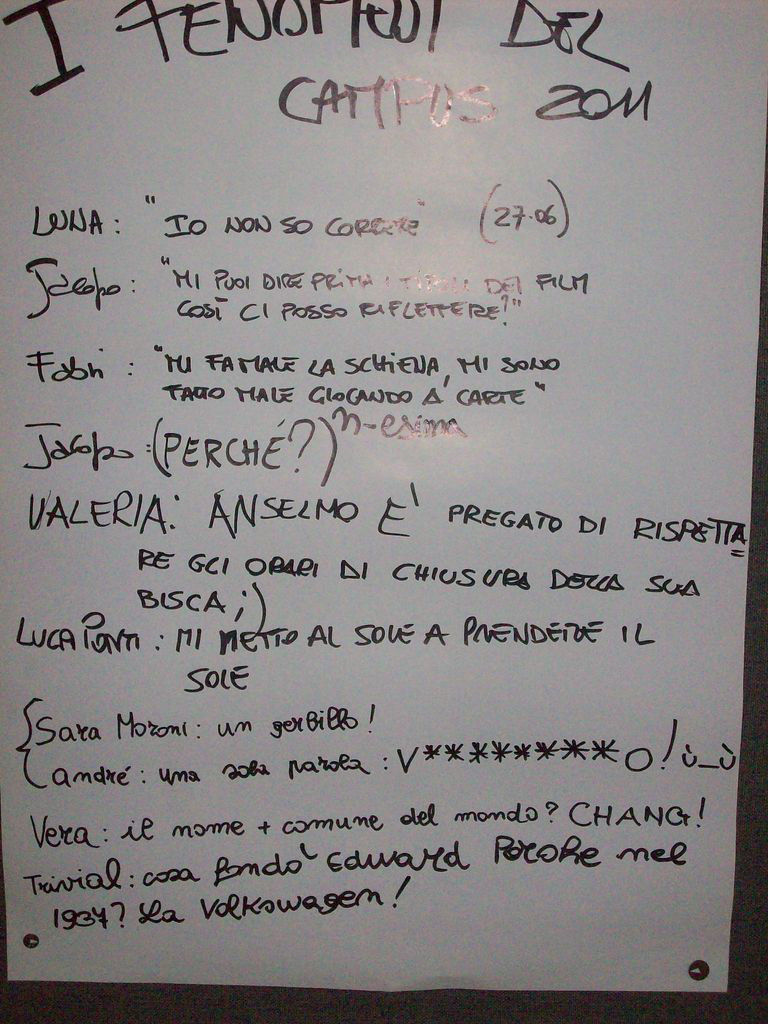 I FENOMENI DEL
CAMPUS 2011
LUNA: "IO NON SO CORRERE" (27.06)
Jacopo: "MI PUOI DIRE PRIMA I TITOLI DEI FILM
COSÌ CI POSSO RIFLETTERE?"
Fabri: "MI FA MALE LA SCHIENA, MI SONO
FATTO MALE GIOCANDO A CARTE"
Jacopo: (PERCHÉ?) n-esima
VALERIA: ANSELMO E' PREGATO DI RISPETTA
RE GLI ORARI DI CHIUSURA DELLA SUA
BISCA ;)
LUCA PONTI: MI METTO AL SOLE A PRENDERE IL
SOLE
Sara Moroni: un gerbillo!
andré: una sola parola: V********O! ù_ù
Vera: il nome + comune del mondo? CHANG!
Trivial: cosa fondò Edward Porche nel
1937? La Volkswagen!